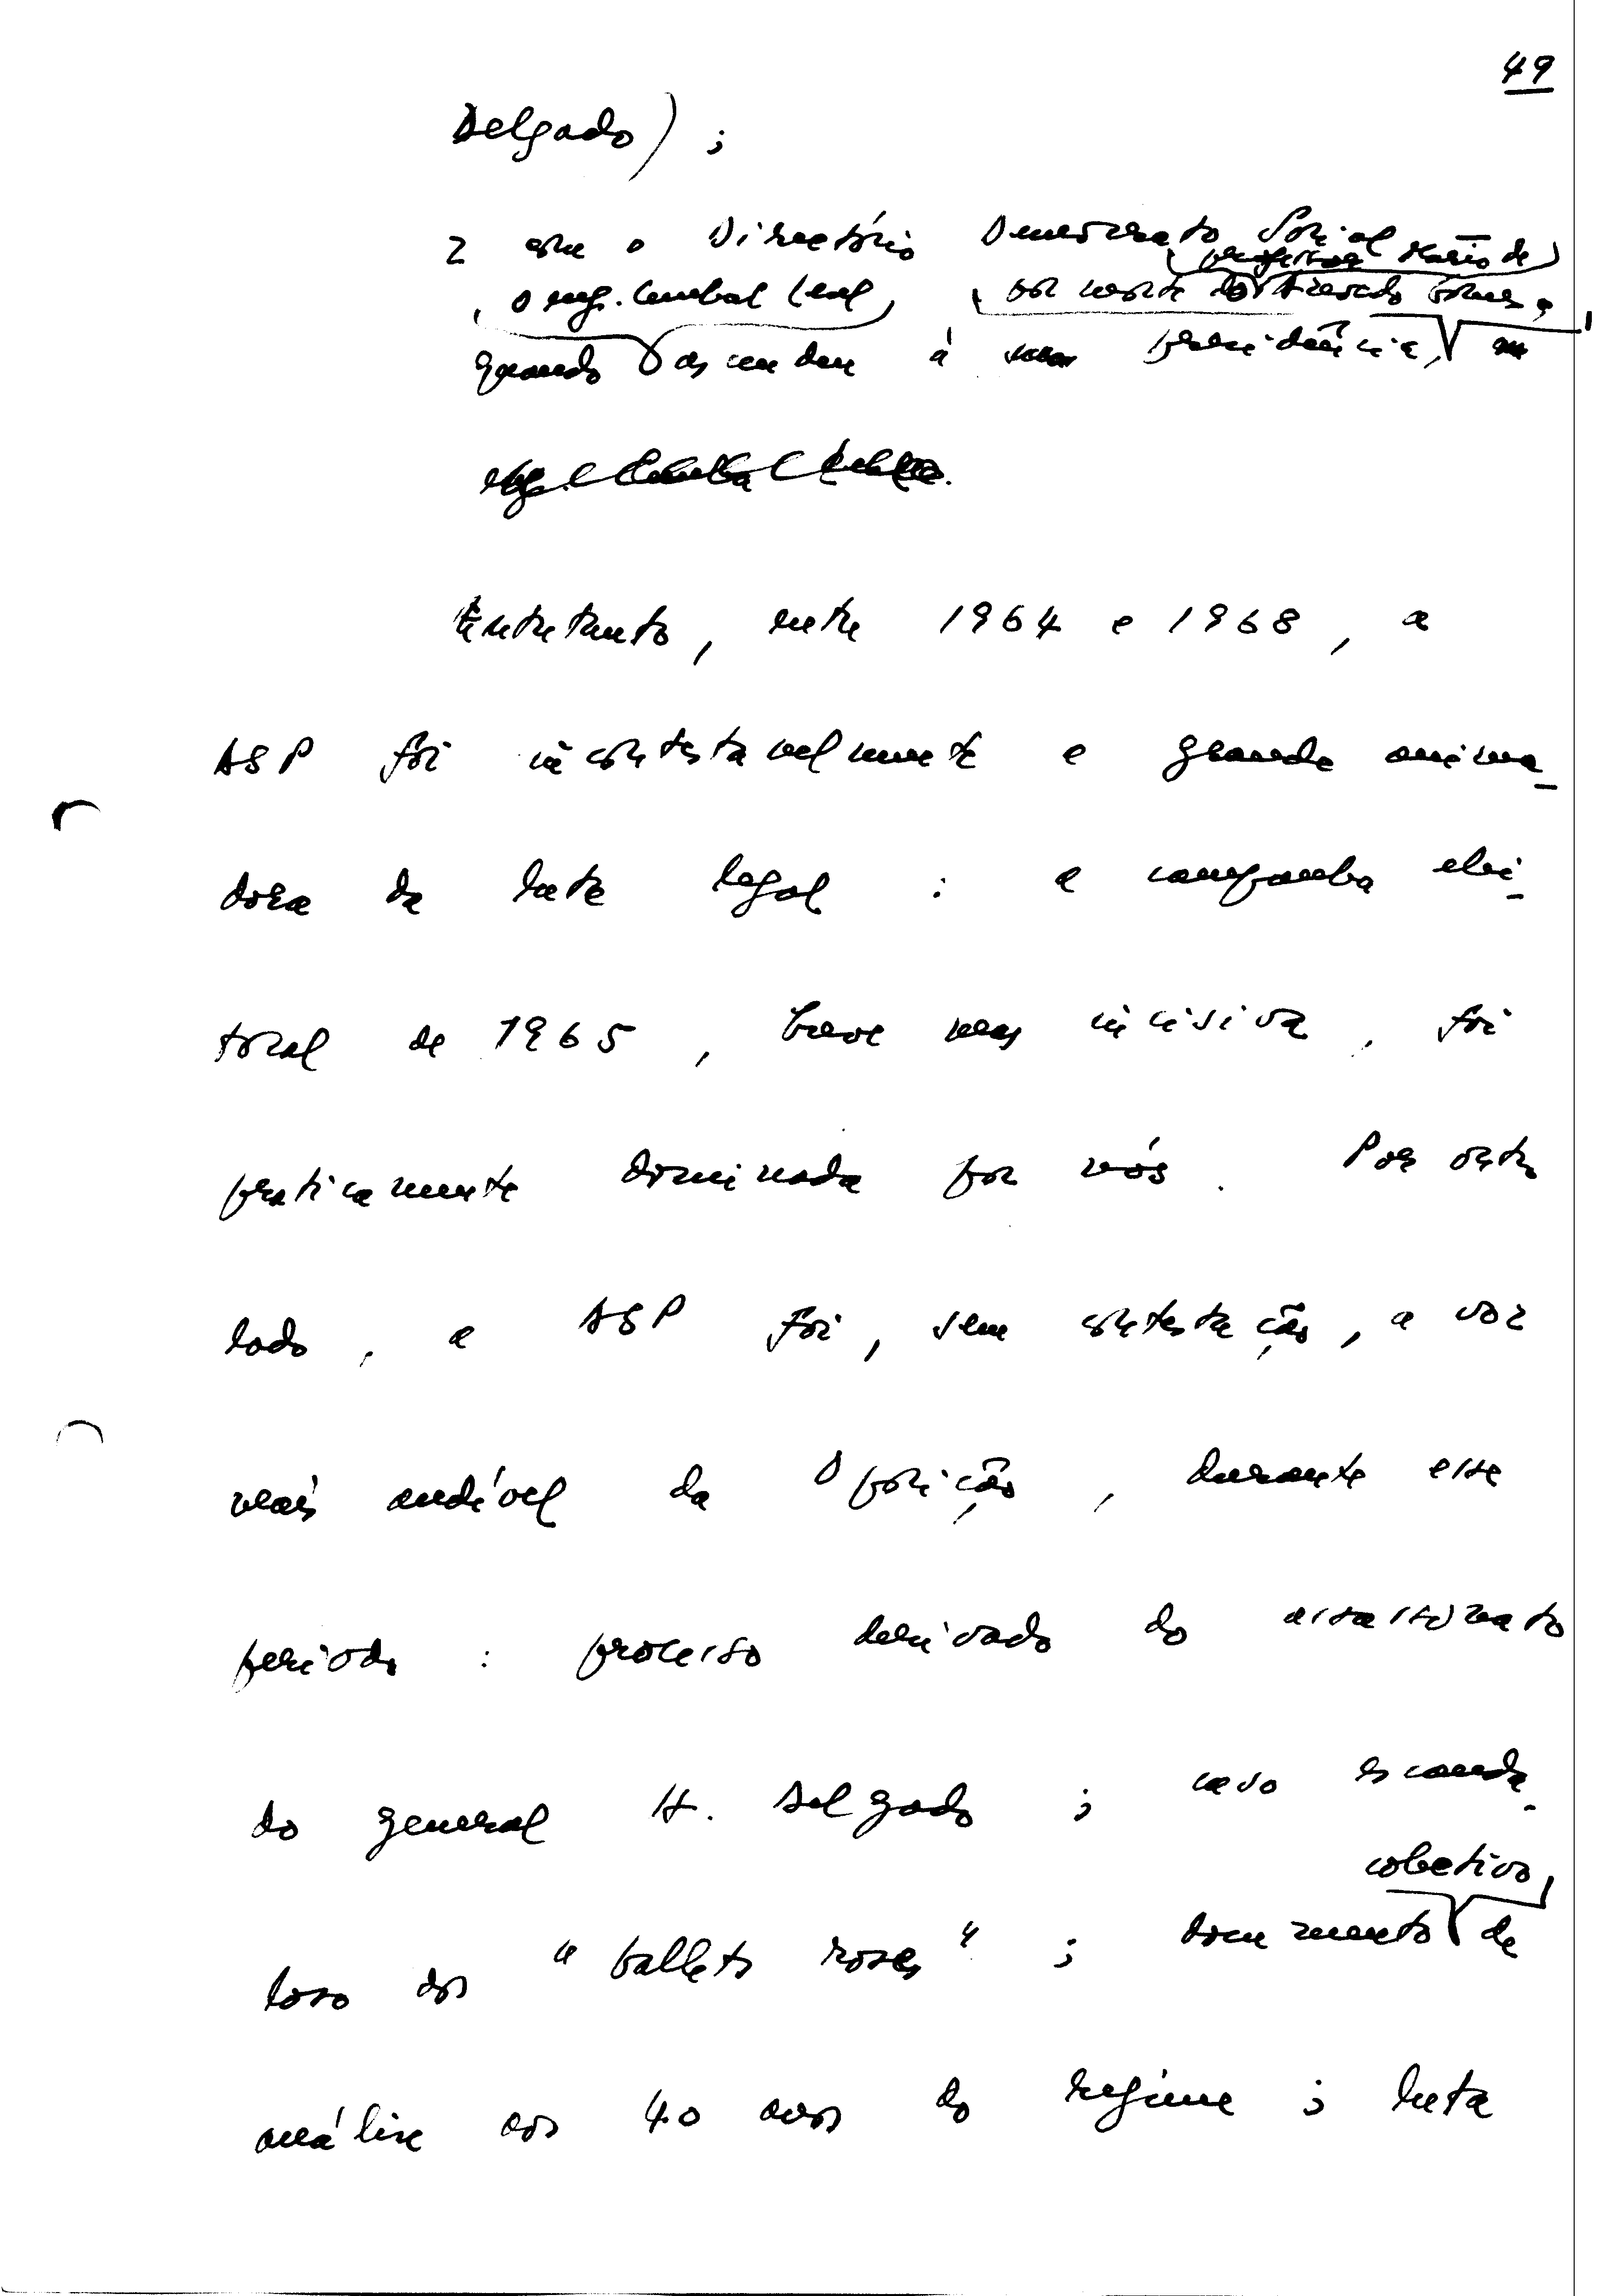 49
Delgado) ;
2 com o Directório Democrato Social
professor Mário de
, o eng. Cunhal Leal, por morte do Azevedo Gomes,
quando ascendeu à sua presidência,
Entretanto, entre 1964 e 1968, a
ASP foi incontestavelmente a grande anima-
dora da luta legal : a campanha elei-
toral de 1965, breve mas incisiva, foi
praticamente dominada por nós. Por outro
lado, a ASP foi, sem contestação, a voz
mais audível da Oposição, durante esse
período : processo derivado do assassinato
do general H. Delgado ; caso escanda-
coletivo,
loso dos "ballets roses" ; documento de
análise aos 40 anos do regime ; luta